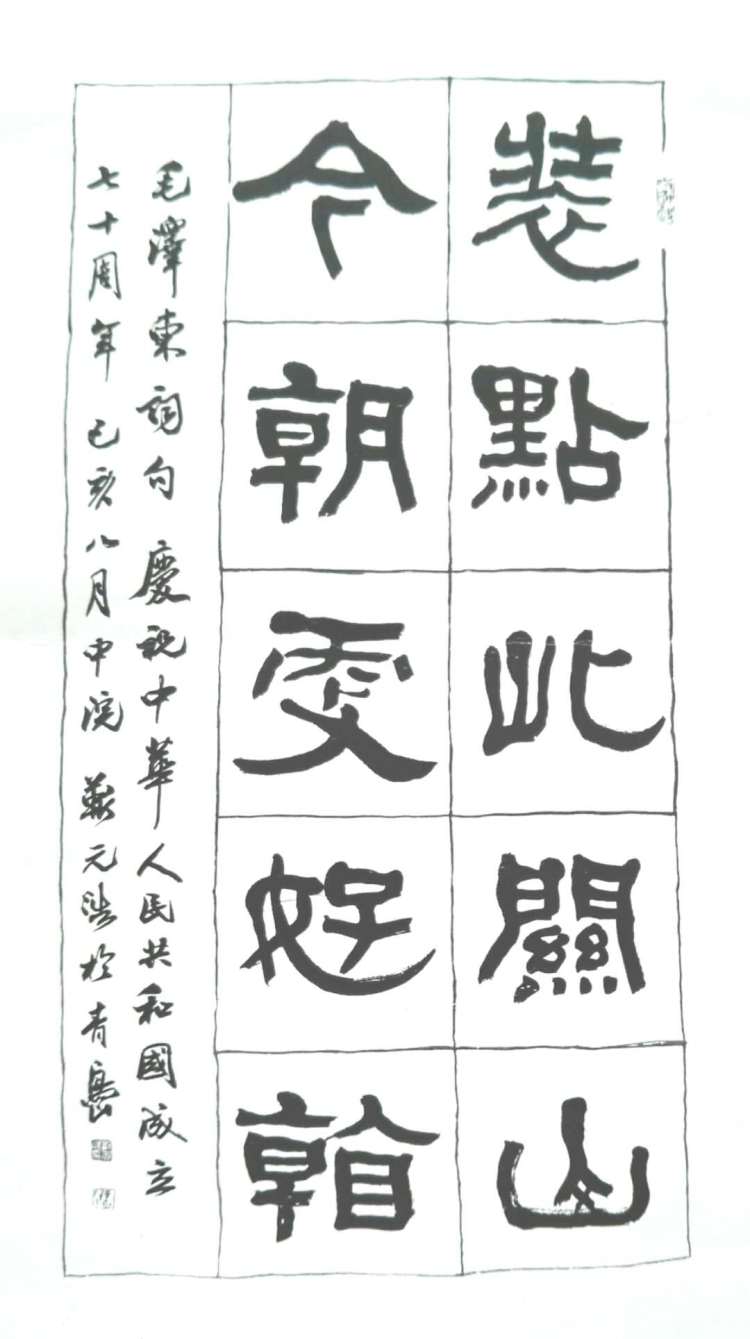 装點此關山
今朝更好看
毛澤東詞句 慶祝中華人民共和國成立
七十周年 己亥八月中浣 元 於青島